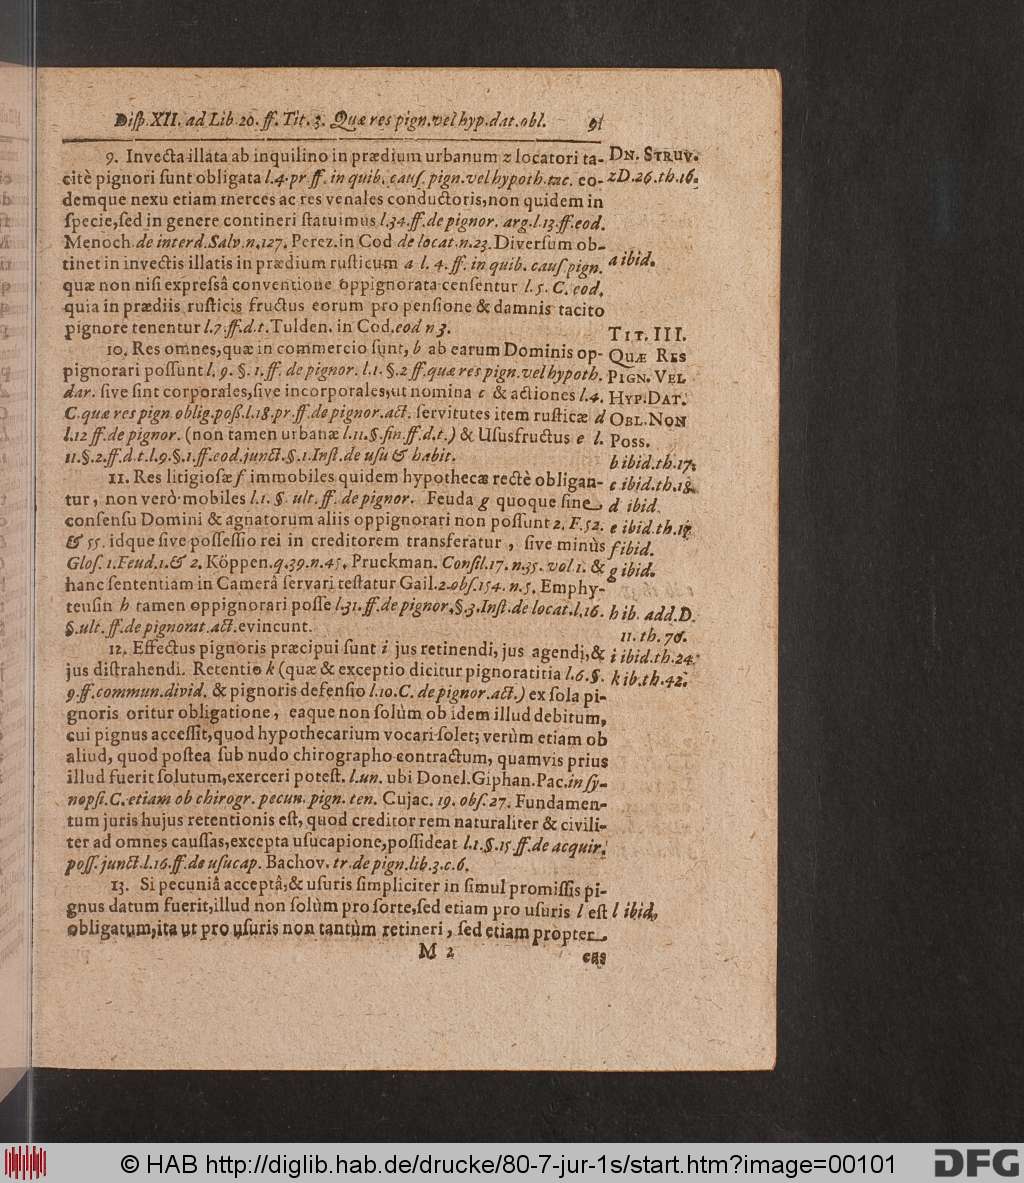 Disp. XII. ad Lib. 20. ff. Tit. 3. Quæ res pign. vel hyp. dat. obl. 91
9. Invecta illata ab inquilino in prædium urbanum z locatori ta-
citè pignori sunt obligata l.4. pr. ff. in quib. caus. pign. vel hypoth. tac. eo-
demque nexu etiam merces ac res venales conductoris, non quidem in
specie, sed in genere contineri statuimus l.34. ff. de pignor. arg. l.13. ff. eod.
Menoch. de interd. Salv. n. 127. Perez. in Cod de locat. n. 23. Diversum ob-
tinet in invectis illatis in prædium rusticum a l. 4. ff. in quib. caus. pign.
quæ non nisi expressâ conventione oppignorata censentur l. 5. C. eod.
quia in prædiis rusticis fructus eorum pro pensione & damnis tacito
pignore tenentur l.7. ff. d. t. Tulden. in Cod. eod n 3.
10. Res omnes, quæ in commercio sunt, b ab earum Dominis op-
pignorari possunt l. 9. §. 1. ff. de pignor. l. 1. §. 2 ff. quæ res pign. vel hypoth.
dar. sive sint corporales, sive incorporales, ut nomina c & actiones l. 4.
C. quæ res pign. oblig. poss. l. 18. pr. ff. de pignor. act. servitutes item rusticæ d
l. 12 ff. de pignor. (non tamen urbanæ l. 11. §. fin. ff. d. t.) & Ususfructus e l.
11. §. 2. ff. d. t. l. 9. §. 1. ff. eod. junct. §. 1. Inst. de usu & habit.
11. Res litigiosæ f immobiles quidem hypothecæ rectè obligan-
tur, non verò mobiles l. 1. §. ult. ff. de pignor. Feuda g quoque sine
consensu Domini & agnatorum aliis oppignorari non possunt 2. F. 52.
& 55. idque sive possessio rei in creditorem transferatur, sive minùs
Glos. 1. Feud. 1. & 2. Köppen. q. 39. n. 45. Pruckman. Consil. 17. n. 35. vol 1. &
hanc sententiam in Camerâ servari testatur Gail. 2. obs. 154. n. 5. Emphy-
teusin h tamen oppignorari posse l. 31. ff. de pignor. §. 3. Inst. de locat. l. 16.
§. ult. ff. de pignorat. act. evincunt.
12. Effectus pignoris præcipui sunt i jus retinendi, jus agendi, &
jus distrahendi. Retentio k (quæ & exceptio dicitur pignoratitia l. 6. §.
9. ff. commun. divid. & pignoris defensio l. 10. C. de pignor. act.) ex sola pi-
gnoris oritur obligatione, eaque non solùm ob idem illud debitum,
cui pignus accessit, quod hypothecarium vocari solet; verùm etiam ob
aliud, quod postea sub nudo chirographo contractum, quamvis prius
illud fuerit solutum, exerceri potest. l. un. ubi Donel. Giphan. Pac. in sy-
nopsi. C. etiam ob chirogr. pecun. pign. ten. Cujac. 19. obs. 27. Fundamen-
tum juris hujus retentionis est, quod creditor rem naturaliter & civili-
ter ad omnes caussas, excepta usucapione, possideat l. 1. §. 15 ff. de acquir.
poss. junct. l. 16. ff. de usucap. Bachov. tr. de pign. lib. 3. c. 6.
13. Si pecuniâ acceptâ, & usuris simpliciter in simul promissis pi-
gnus datum fuerit, illud non solùm pro sorte, sed etiam pro usuris l est
obligatum, ita ut pro usuris non tantùm retineri, sed etiam propter
M 2 eas
DN. STRUV.
z D. 26. th. 16.
a ibid.
TIT. III.
QUÆ RES
PIGN. VEL
HYP. DAT.
OBL. NON
Poss.
b ibid. th. 17.
c ibid. th. 18.
d ibid.
e ibid. th. 19.
f ibid.
g ibid.
h ib. add. D.
11. th. 76.
i ibid. th. 24.
k ib. th. 42.
l ibid.
© HAB http://diglib.hab.de/drucke/80-7-jur-1s/start.htm?image=00101
DFG